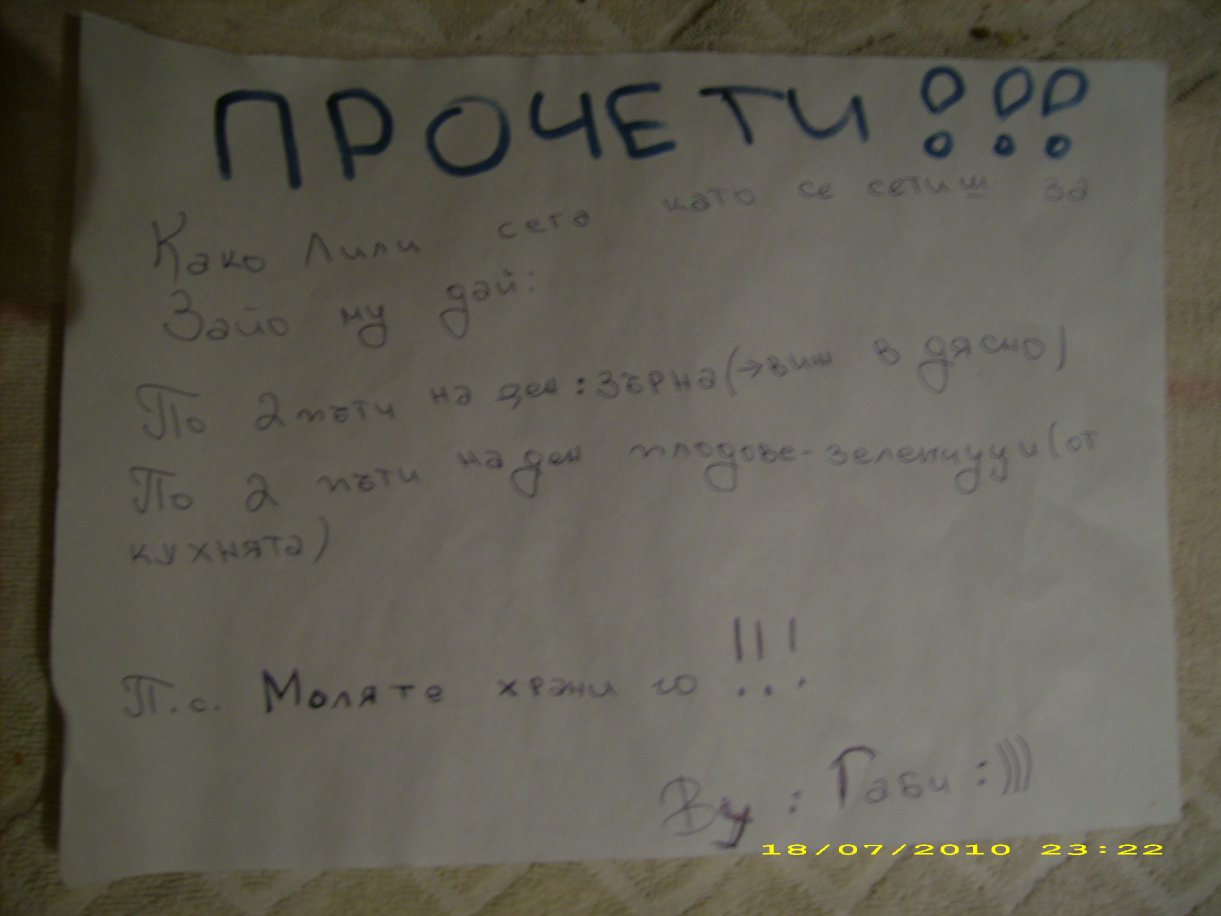 ПРОЧЕТИ!!!
Како Лили сега като се сетиш за
Зайо му дай:
По 2 пъти на ден: зърна (→ виж в дясно)
По 2 пъти на ден плодове-зеленчуци (от
кухнята)
П.с. Моля те храни го !!!
By: Габи :)))
18/07/2010 23:22